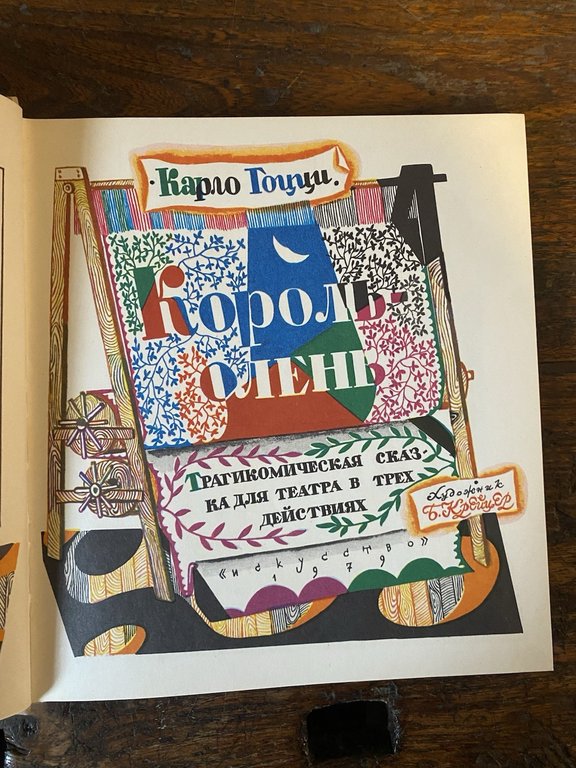 Карло Гоцци.
Король-
олень
Трагикомическая сказ-
ка для театра в трех
действиях
Художник
Б. Крейцер
«искусство»
1979